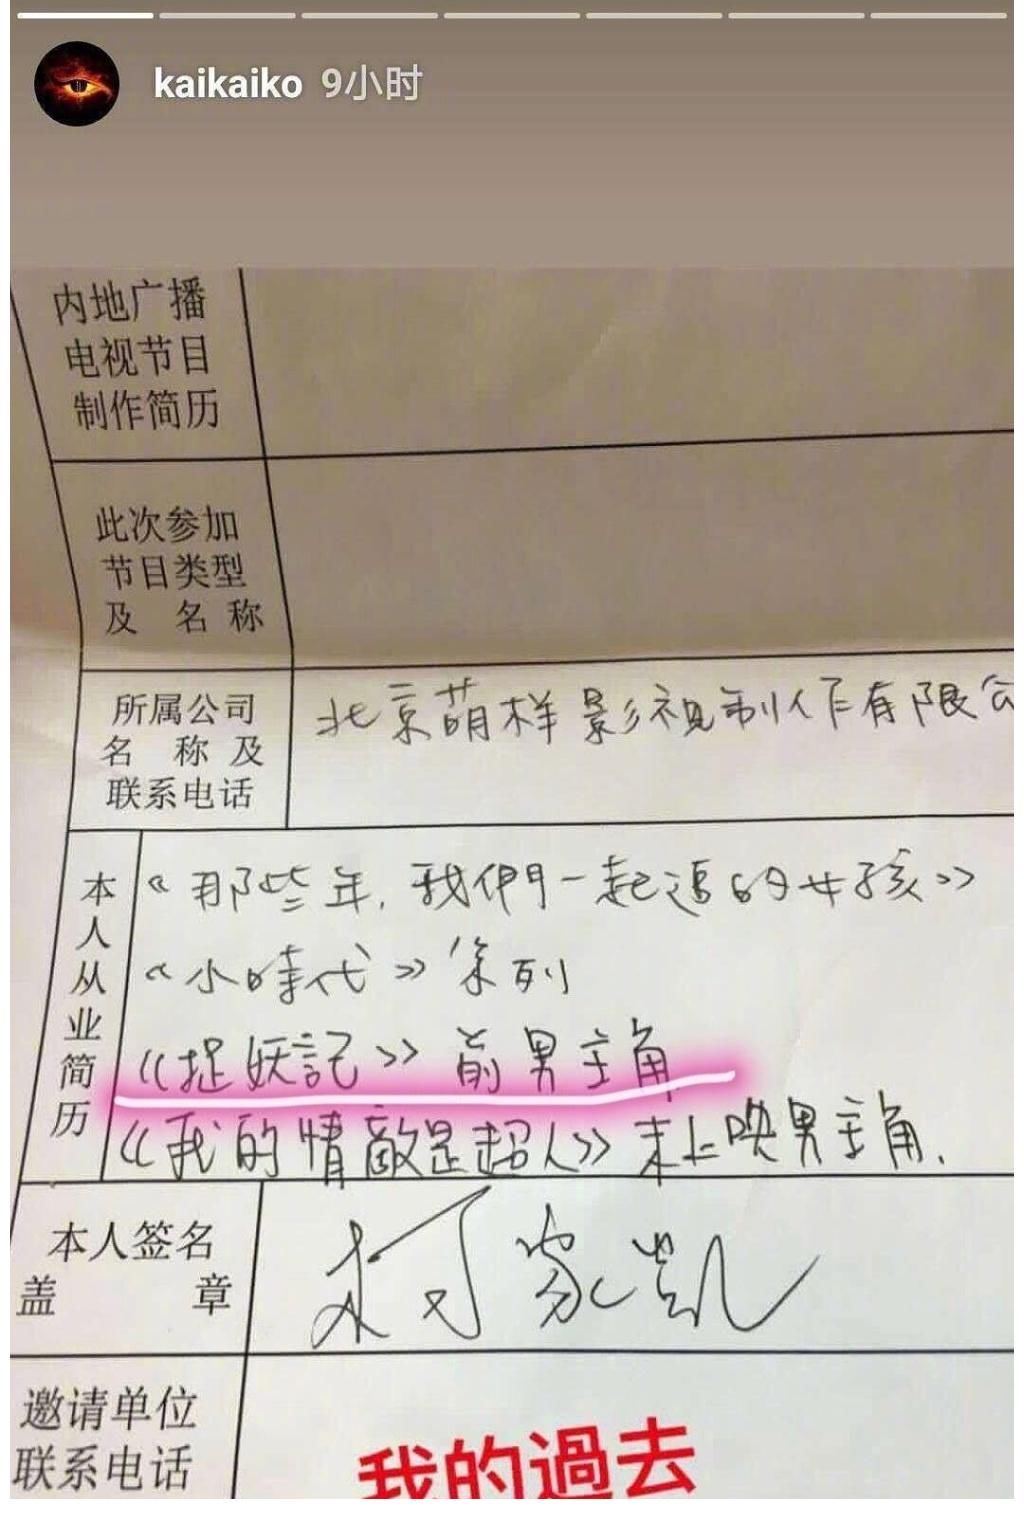 kaikaiko 9小时
内地广播
电视节目
制作简历
此次参加
节目类型
及 名 称
所属公司
名 称 及
联系电话
北京萌样影视制作有限公
本人从业简历
《那些年，我們一起追的女孩》
《小時代》系列
《捉妖記》前男主角
《我的情敵是超人》未上映男主角.
本人签名
盖 章
柯家凯
邀请单位
联系电话
我的過去